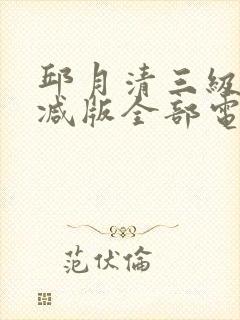 邱月清三級
减版全部電
范伏倫